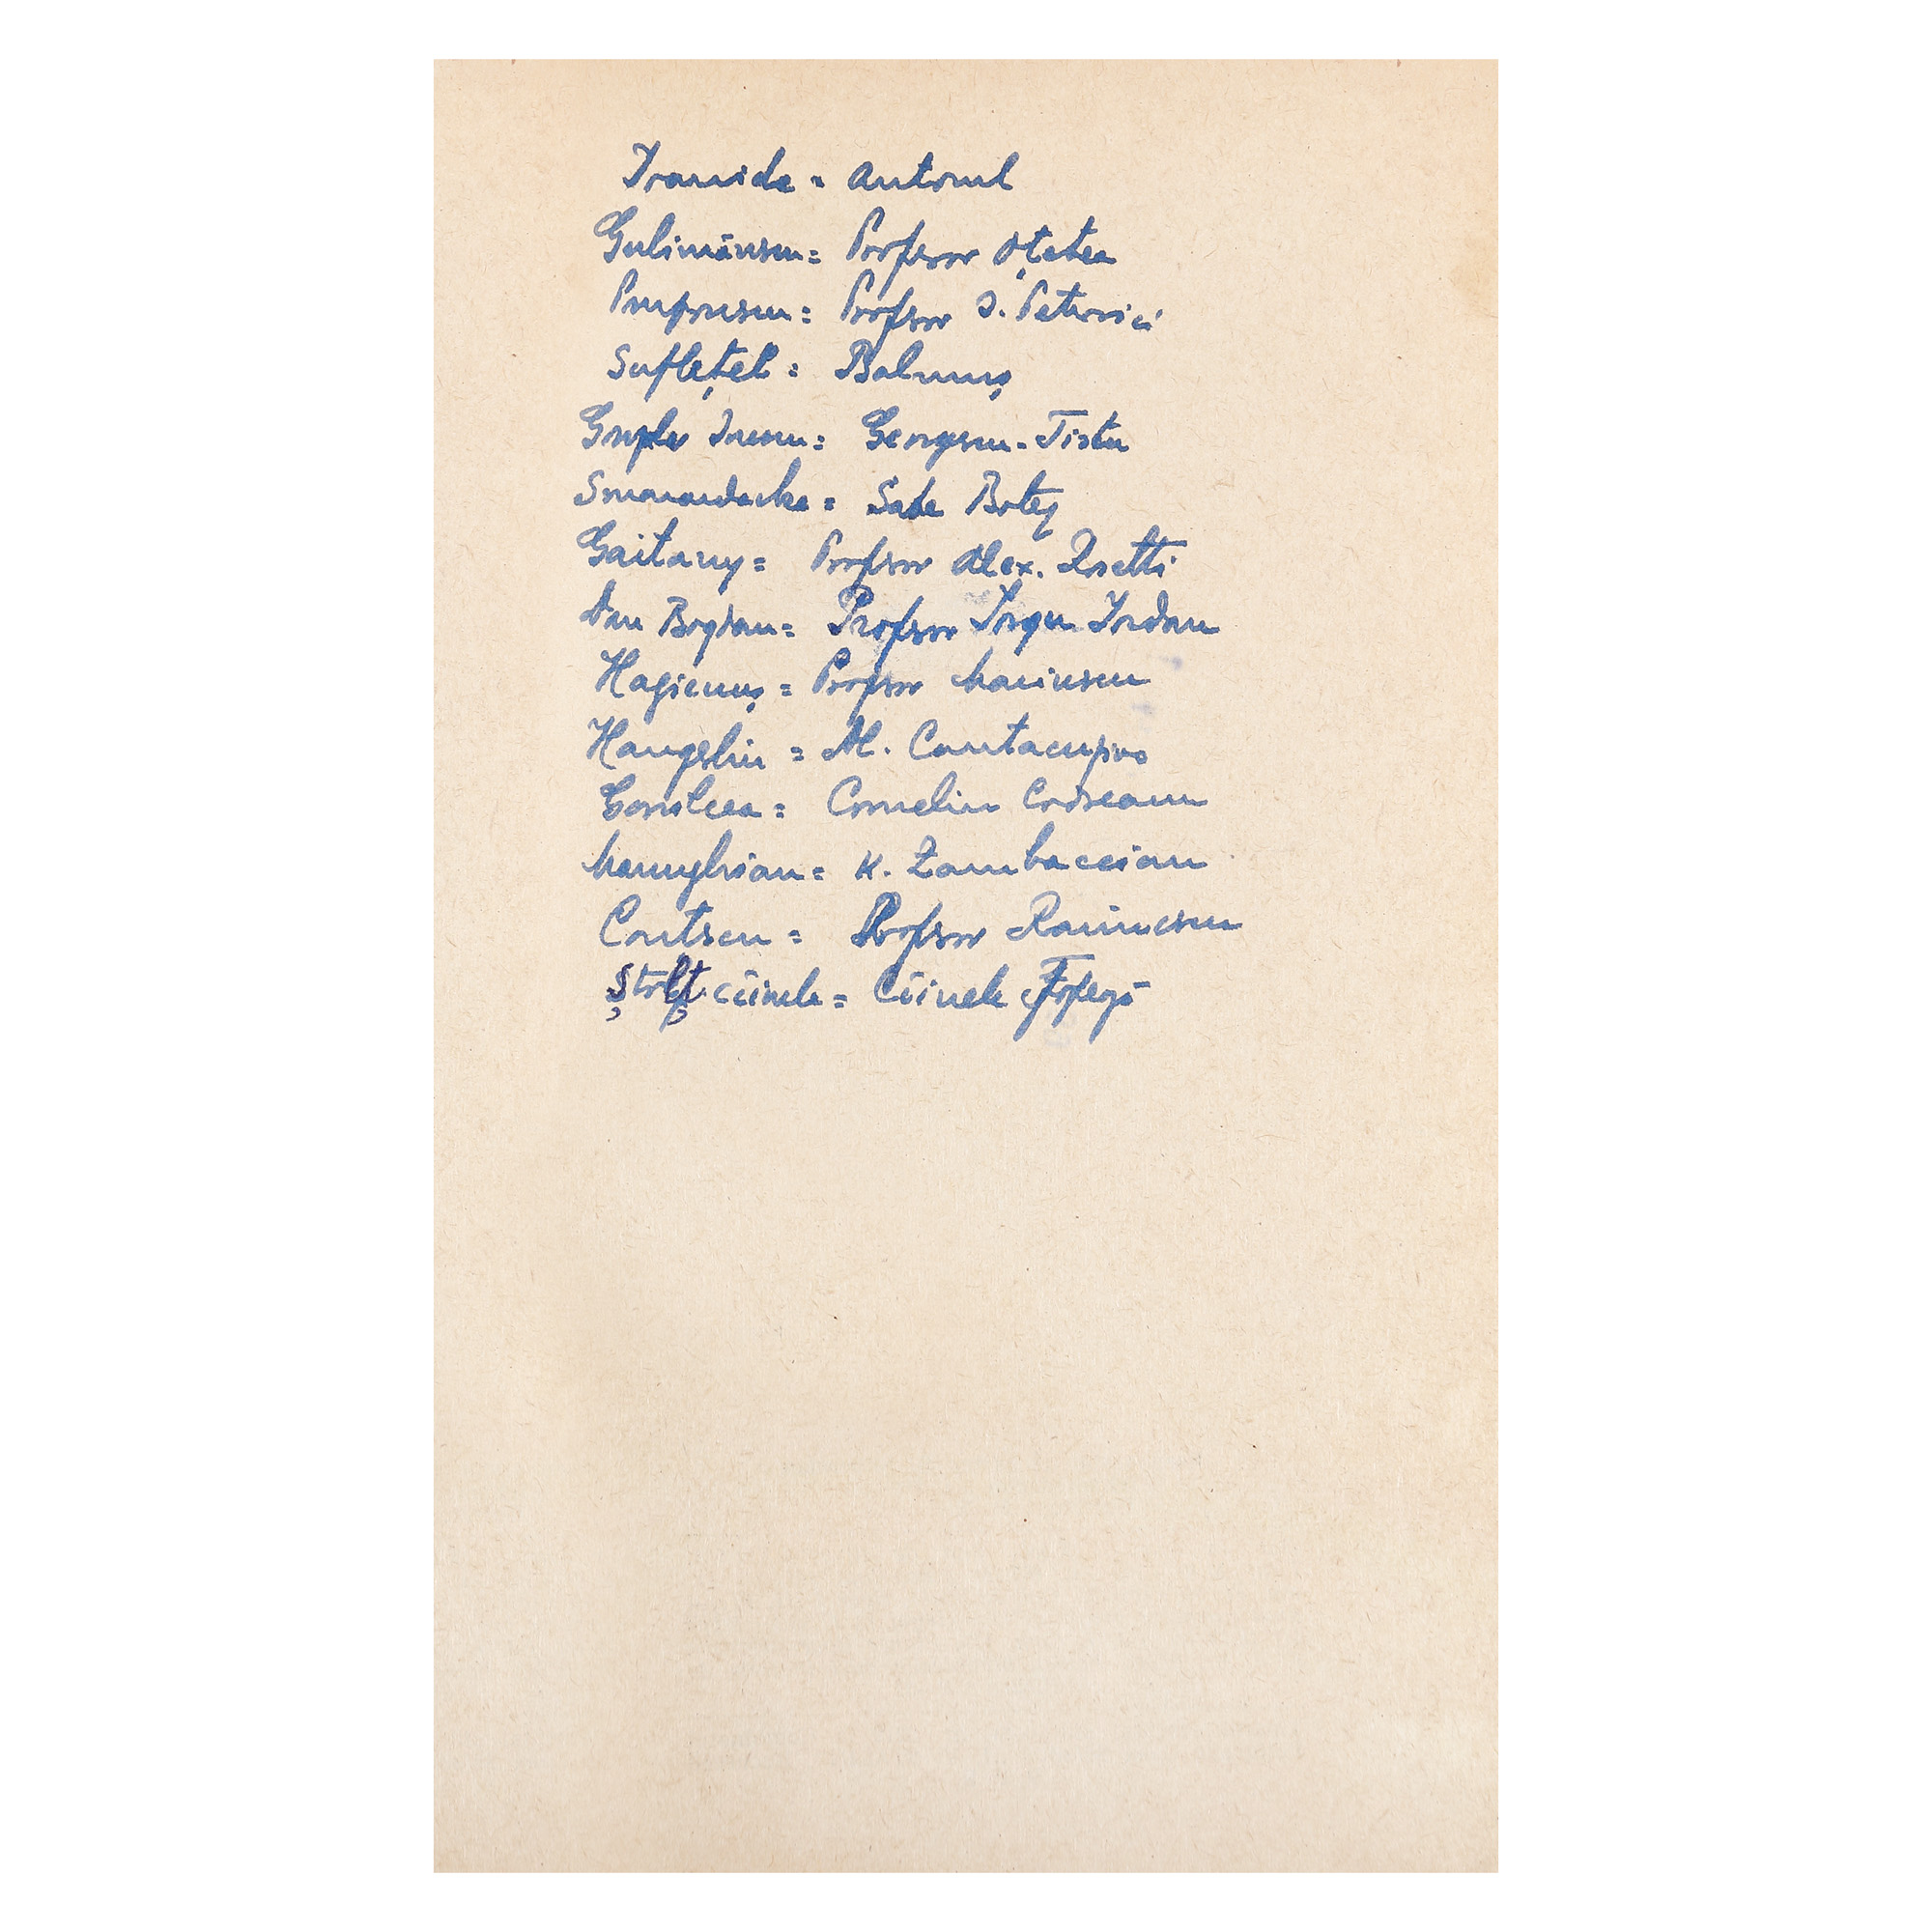 Ioanide = autorul
Gulimănescu = Profesor Oțetea
Pomponescu = Profesor I. Petrovici
Sufleţel = Balmuş
Gonzalv Ionescu = Georgescu-Tistu
Smarandache = Sade Botez
Gaitany = Profesor Alex. Rosetti
Dan Bogdan = Profesor Iorgu Iordan
Hagienuş = Profesor Marinescu
Hangerliu = Al. Cantacuzino
Gavrilcea = Corneliu Codreanu
Manughian = K. Zambaccian
Contescu = Profesor Raiinescu
Ştolţ cîinele = Cîinele Fofează